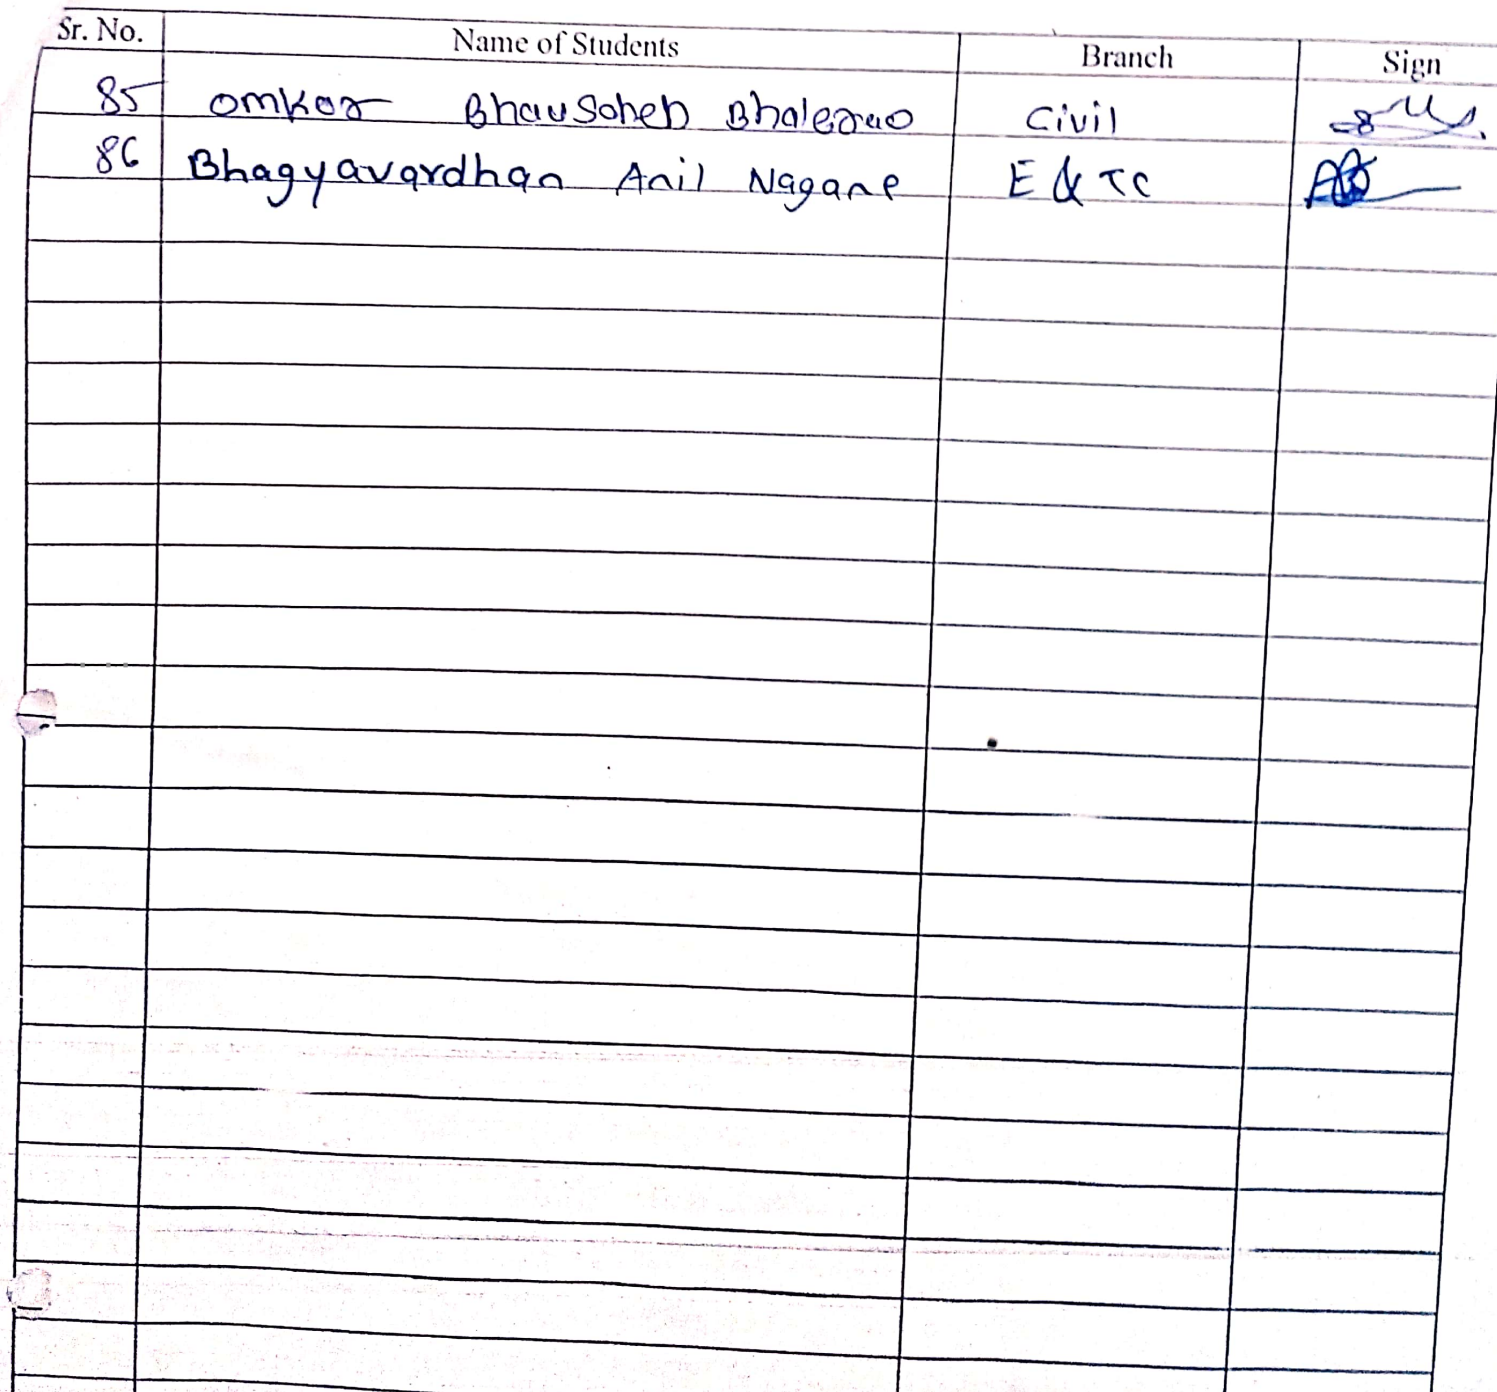 Sr. No. Name of Students Branch Sign
85 Omkar Bhausaheb Bhalerao Civil
86 Bhagyavardhan Anil Nagane E & TC